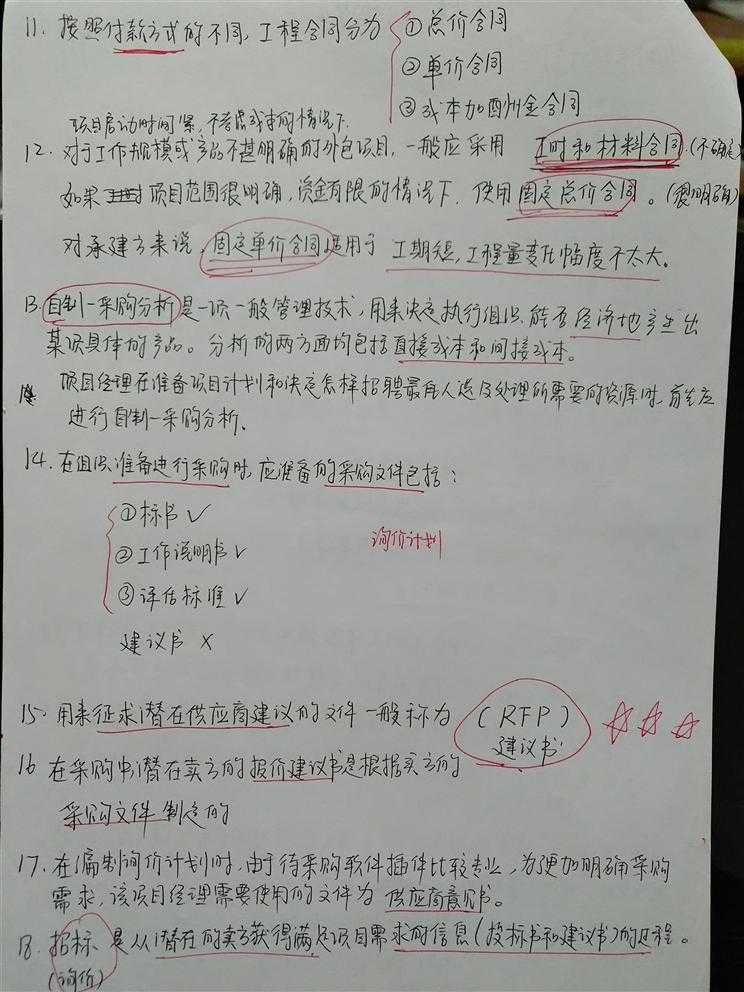 11. 按照付款方式的不同,工程合同分为
①总价合同
②单价合同
③成本加酬金合同
项目启动时间紧,不考虑成本的情况下.
12. 对于工作规模或产品不甚明确的外包项目,一般应采用 工时和材料合同.(不确定)
如果 项目范围很明确,资金有限的情况下,使用固定总价合同。(很明确)
对承建方来说,固定单价合同适用于 工期短,工程量变化幅度不太大。
13. 自制一采购分析是一项一般管理技术,用来决定执行组织能否经济地产生出
某项具体的产品。分析的两方面均包括直接成本和间接成本。
项目经理在准备项目计划和决定怎样招聘最佳人选及处理所需要的资源时,首先应
进行自制一采购分析.
14. 在组织准备进行采购时,应准备的采购文件包括:
①标书 ✓
②工作说明书 ✓
③评估标准 ✓
询价计划
建议书 ×
15. 用来征求潜在供应商建议的文件一般称为 (RFP)
建议书 ☆☆☆
16 在采购中,潜在卖方的报价建议书是根据买方的
采购文件制定的
17. 在编制询价计划时,由于待采购软件插件比较专业,为更加明确采购
需求,该项目经理需要使用的文件为 供应商意见书。
18. 招标 是从潜在的卖方获得满足项目需求的信息(投标书和建议书)的过程。
(询价)